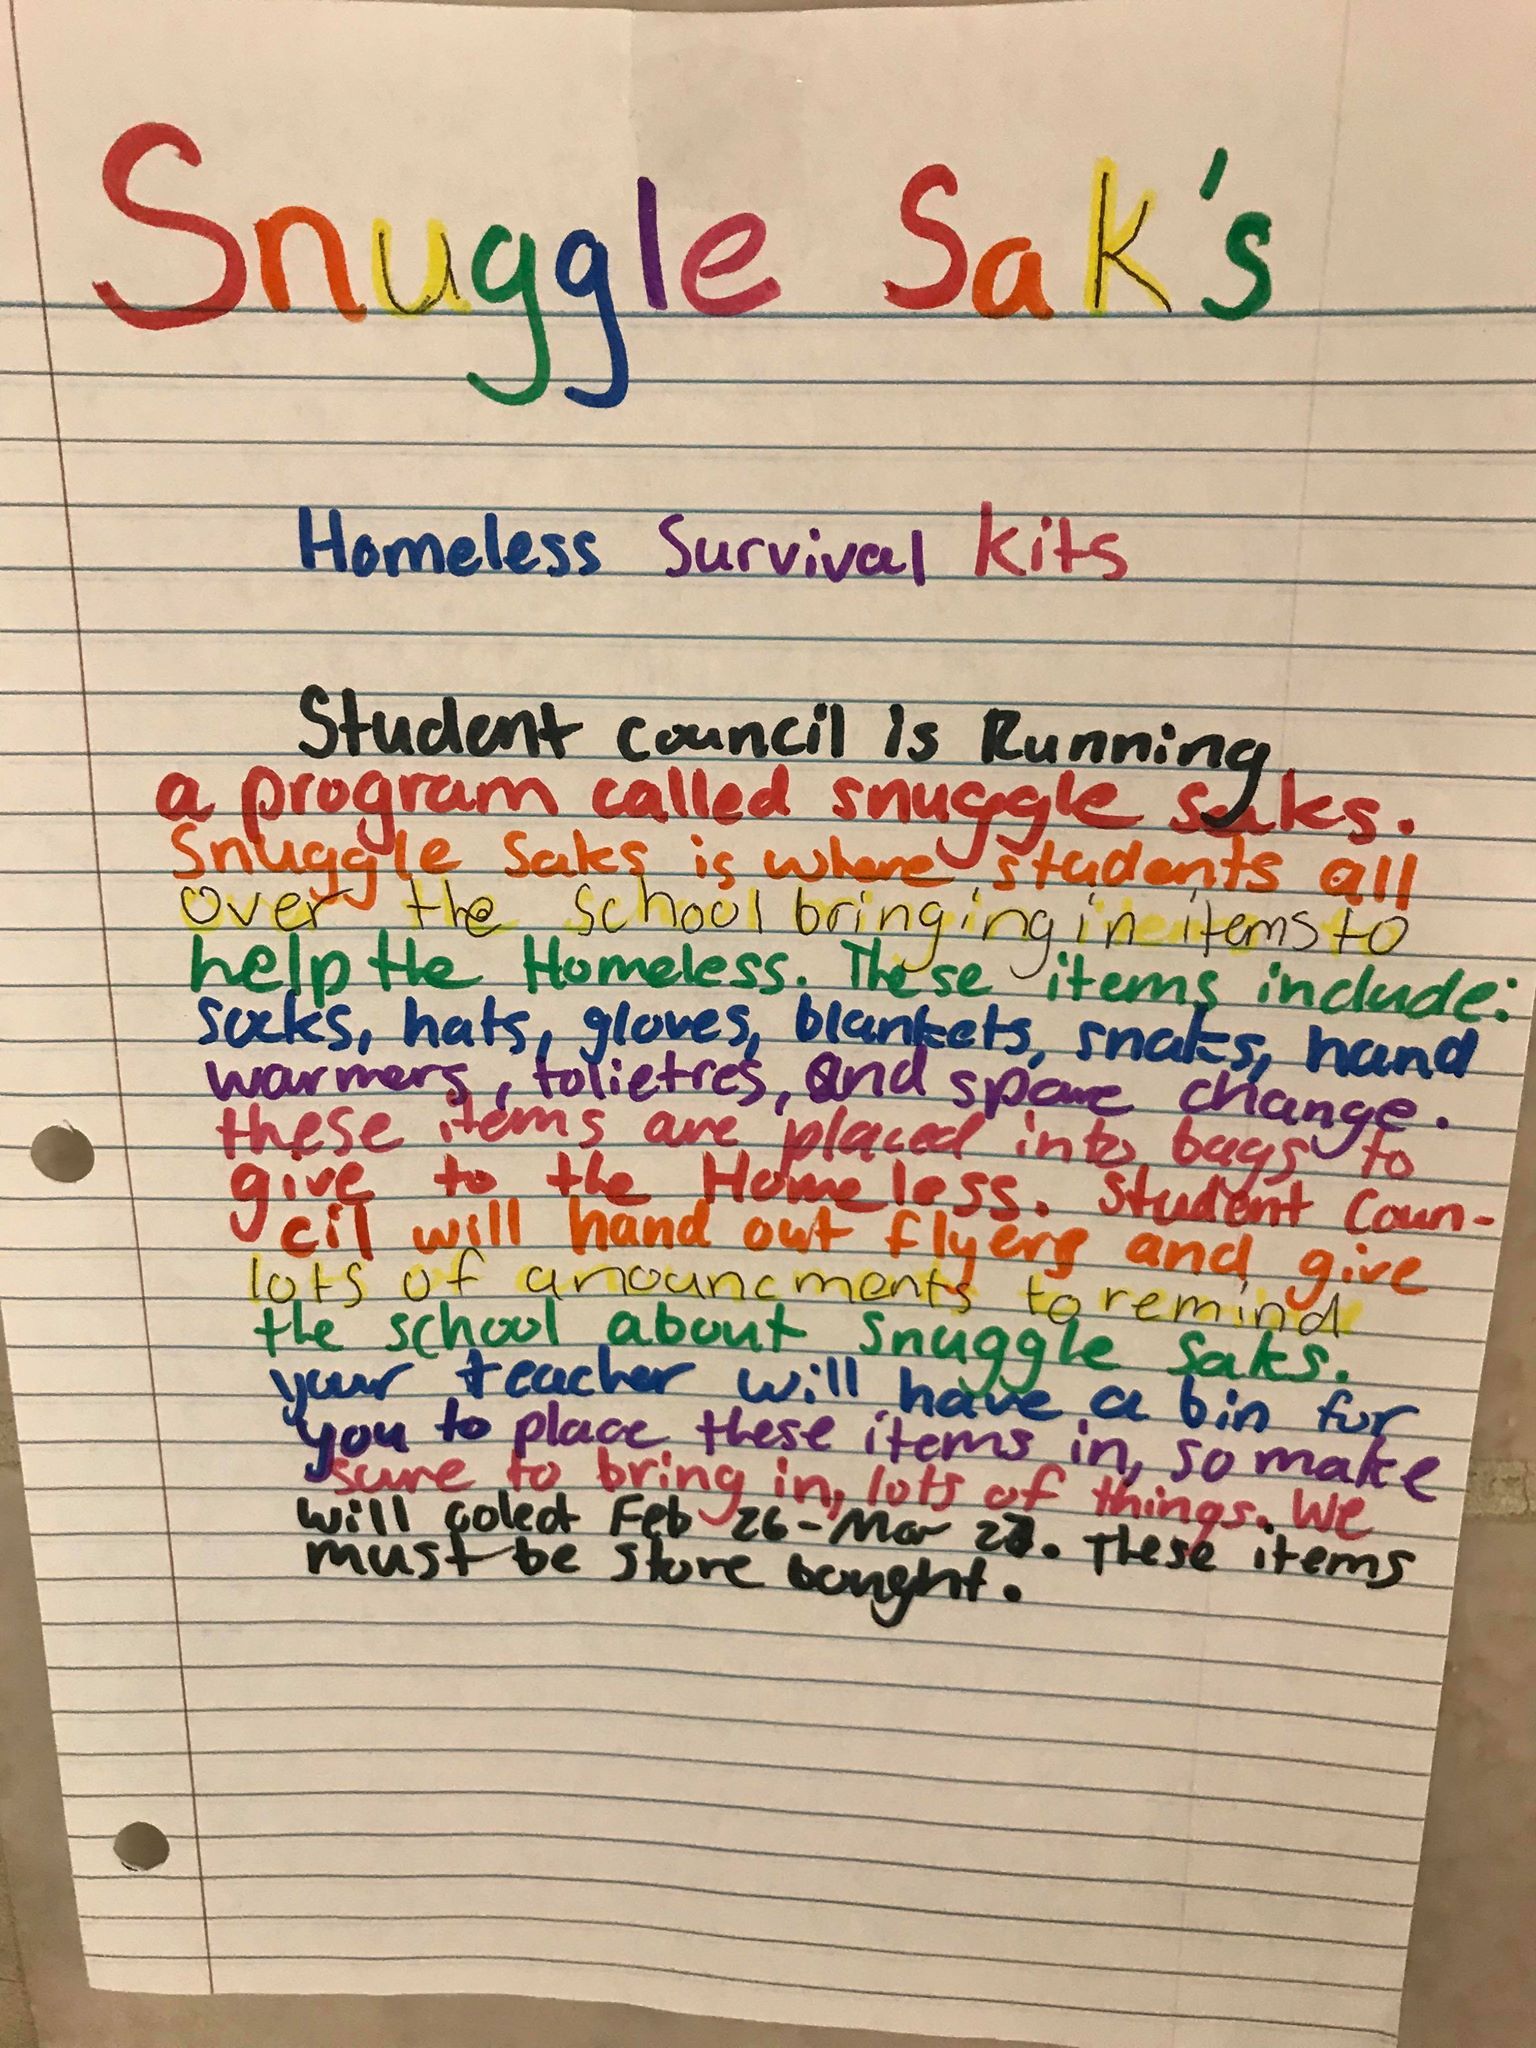 Snuggle Sak's
Homeless Survival Kits
Student council is Running
a program called snuggle saks.
Snuggle Saks is where students all
over the school bringing in items to
help the Homeless. These items include:
socks, hats, gloves, blankets, snaks, hand
warmers, tolietres, and spare change.
these items are placed into bags to
give to the Homeless. Student Coun-
cil will hand out flyers and give
lots of anouncments to remind
the school about snuggle saks.
your teacher will have a bin for
you to place these items in, so make
sure to bring in, lots of things. We
will colect Feb 26-Mar These items
must be store bought.